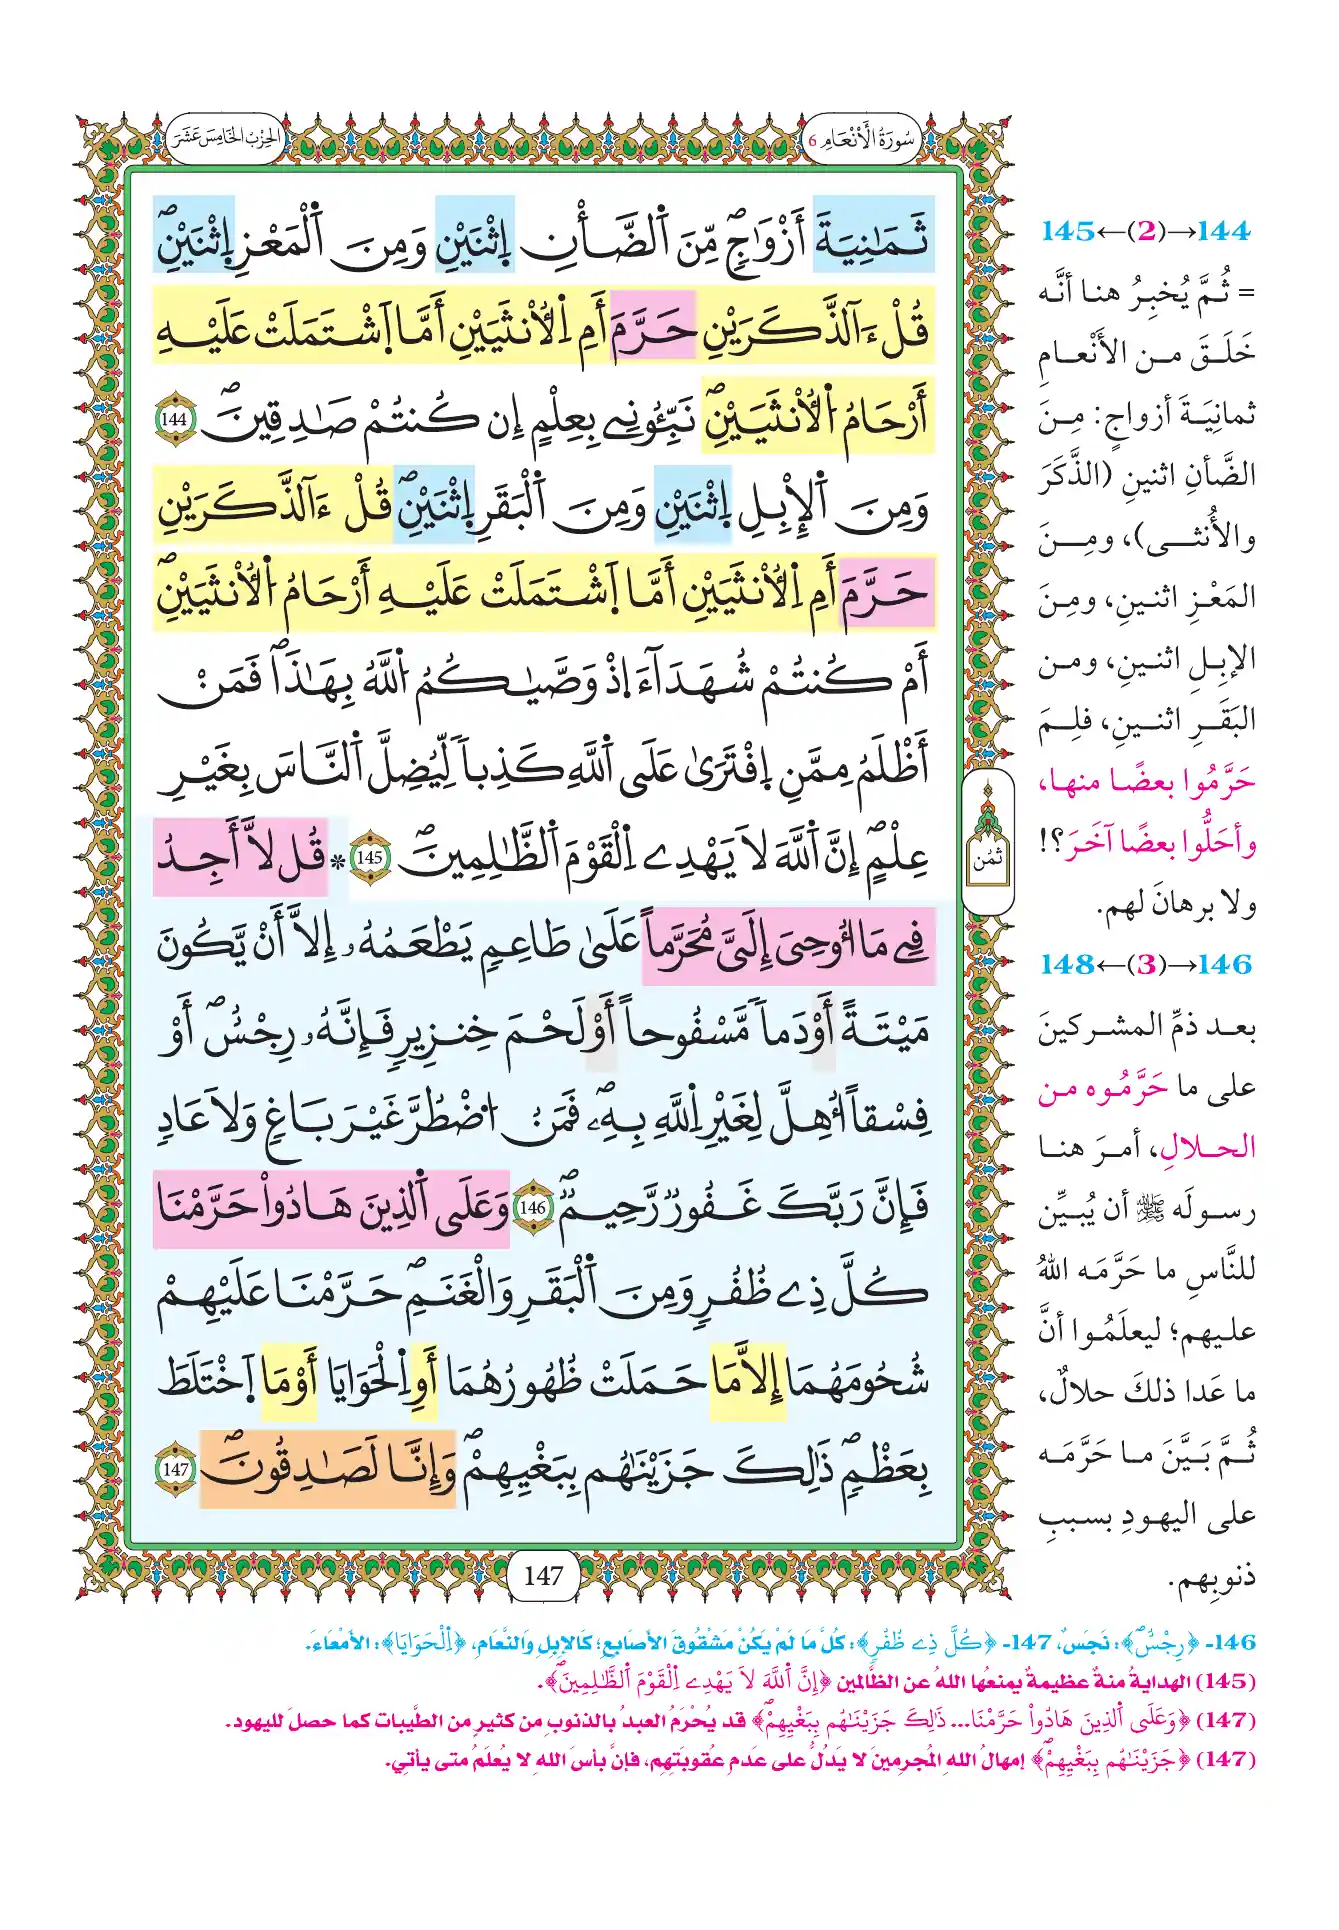 سُورَةُ الْأَنْعَامِ 6
الحِزْبُ الخَامِسَ عَشَرَ
ثَمَٰنِيَةَ أَزْوَٰجٖۖ مِّنَ اَ۬لضَّأْنِ اِ۪ثْنَيْنِ وَمِنَ اَ۬لْمَعْزِ اِ۪ثْنَيْنِۖ
قُلَ ءَآلذَّكَرَيْنِ حَرَّمَ أَمِ اِ۬لُانثَيَيْنِ أَمَّا اَ۪شْتَمَلَتْ عَلَيْهِ
أَرْحَامُ اُ۬لُانثَيَيْنِۖ نَبِّـُٔونِے بِعِلْمٍ إِن كُنتُمْ صَٰدِقِينَۖ 144
وَمِنَ اَ۬لْإِبِلِ اِ۪ثْنَيْنِ وَمِنَ اَ۬لْبَقَرِ اِ۪ثْنَيْنِۖ قُلَ ءَآلذَّكَرَيْنِ
حَرَّمَ أَمِ اِ۬لُانثَيَيْنِ أَمَّا اَ۪شْتَمَلَتْ عَلَيْهِ أَرْحَامُ اُ۬لُانثَيَيْنِۖ
أَمْ كُنتُمْ شُهَدَآءَ اِ۪ذْ وَصَّيٰكُمُ اُ۬للَّهُ بِهَٰذَاۖ فَمَنَ
أَظْلَمُ مِمَّنِ اِ۪فْتَر۪يٰ عَلَي اَ۬للَّهِ كَذِباٗ لِّيُضِلَّ اَ۬لنَّاسَ بِغَيْرِ
عِلْمٍۖ إِنَّ اَ۬للَّهَ لَا يَهْدِے اِ۬لْقَوْمَ اَ۬لظَّٰلِمِينَۖ 145 * قُل لَّا أَجِدُ
فِے مَا أُوحِيَ إِلَيَّ مُحَرَّماً عَلَيٰ طَاعِمٖ يَطْعَمُهُۥ إِلَّا أَنْ يَّكُونَ
مَيْتَةً أَوْ دَماٗ مَّسْفُوحاً أَوْ لَحْمَ خِنزِيرٖ فَإِنَّهُۥ رِجْسٌۖ أَوْ
فِسْقاً ا۟هِلَّ لِغَيْرِ اِ۬للَّهِ بِهِۦۖ فَمَنُ اُ۟ضْطُرَّ غَيْرَ بَاغٖ وَلَا عَادٖ
فَإِنَّ رَبَّكَ غَفُورٞ رَّحِيمٞۖ 146 وَعَلَي اَ۬لذِينَ هَادُواْ حَرَّمْنَا
كُلَّ ذِے ظُفُرٖ وَمِنَ اَ۬لْبَقَرِ وَالْغَنَمِۖ حَرَّمْنَا عَلَيْهِمْ
شُحُومَهُمَا إِلَّا مَا حَمَلَتْ ظُهُورُهُمَا أَوِ اِ۬لْحَوَايَا أَوْ مَا اَ۪خْتَلَطَ
بِعَظْمٖۖ ذَٰلِكَ جَزَيْنَٰهُم بِبَغْيِهِمْۖ وَإِنَّا لَصَٰدِقُونَۖ 147
ثمُن
147
144→(2)←145
= ثُمَّ يُخبِرُ هنا أنَّه
خَلَقَ من الأَنْعامِ
ثمانِيَةَ أزواجٍ: مِنَ
الضَّأنِ اثنينِ (الذَّكَرَ
والأُنثى)، ومِنَ
المَعْزِ اثنينِ، ومِنَ
الإبِلِ اثنينِ، ومن
البَقَرِ اثنينِ، فلِمَ
حَرَّمُوا بعضًا منها،
وأحَلُّوا بعضًا آخَرَ؟!
ولا برهانَ لهم.
146→(3)←148
بعد ذمِّ المشركينَ
على ما حَرَّمُوه من
الحلالِ، أمرَ هنا
رسولَه ﷺ أن يُبيِّن
للنَّاسِ ما حَرَّمَه اللهُ
عليهم؛ ليعلَمُوا أنَّ
ما عَدا ذلكَ حلالٌ،
ثُمَّ بَيَّنَ ما حَرَّمَه
على اليهودِ بسببِ
ذنوبِهم.
146- ﴿رِجْسٌۖ﴾: نَجَسٌ، 147- ﴿كُلَّ ذِے ظُفُرٖ﴾: كُلَّ مَا لَمْ يَكُنْ مَشْقُوقَ الأَصابِعِ؛ كَالإِبِلِ وَالنَّعَامِ، ﴿اِ۬لْحَوَايَا﴾: الأَمْعَاءَ.
(145) الهدايةُ منةٌ عظيمةٌ يمنعُها اللهُ عن الظَّالمين ﴿إِنَّ اَ۬للَّهَ لَا يَهْدِے اِ۬لْقَوْمَ اَ۬لظَّٰلِمِينَۖ﴾.
(147) ﴿وَعَلَي اَ۬لذِينَ هَادُواْ حَرَّمْنَا... ذَٰلِكَ جَزَيْنَٰهُم بِبَغْيِهِمْۖ﴾ قد يُحْرَمُ العبدُ بالذنوبِ من كثيرٍ من الطَّيبات كما حصلَ لليهود.
(147) ﴿جَزَيْنَٰهُم بِبَغْيِهِمْۖ﴾ إمهالُ اللهِ المُجرمينَ لا يَدُلُّ على عَدمِ عُقوبَتِهِم، فإنَّ بأسَ اللهِ لا يُعلَمُ متى يأتِي.